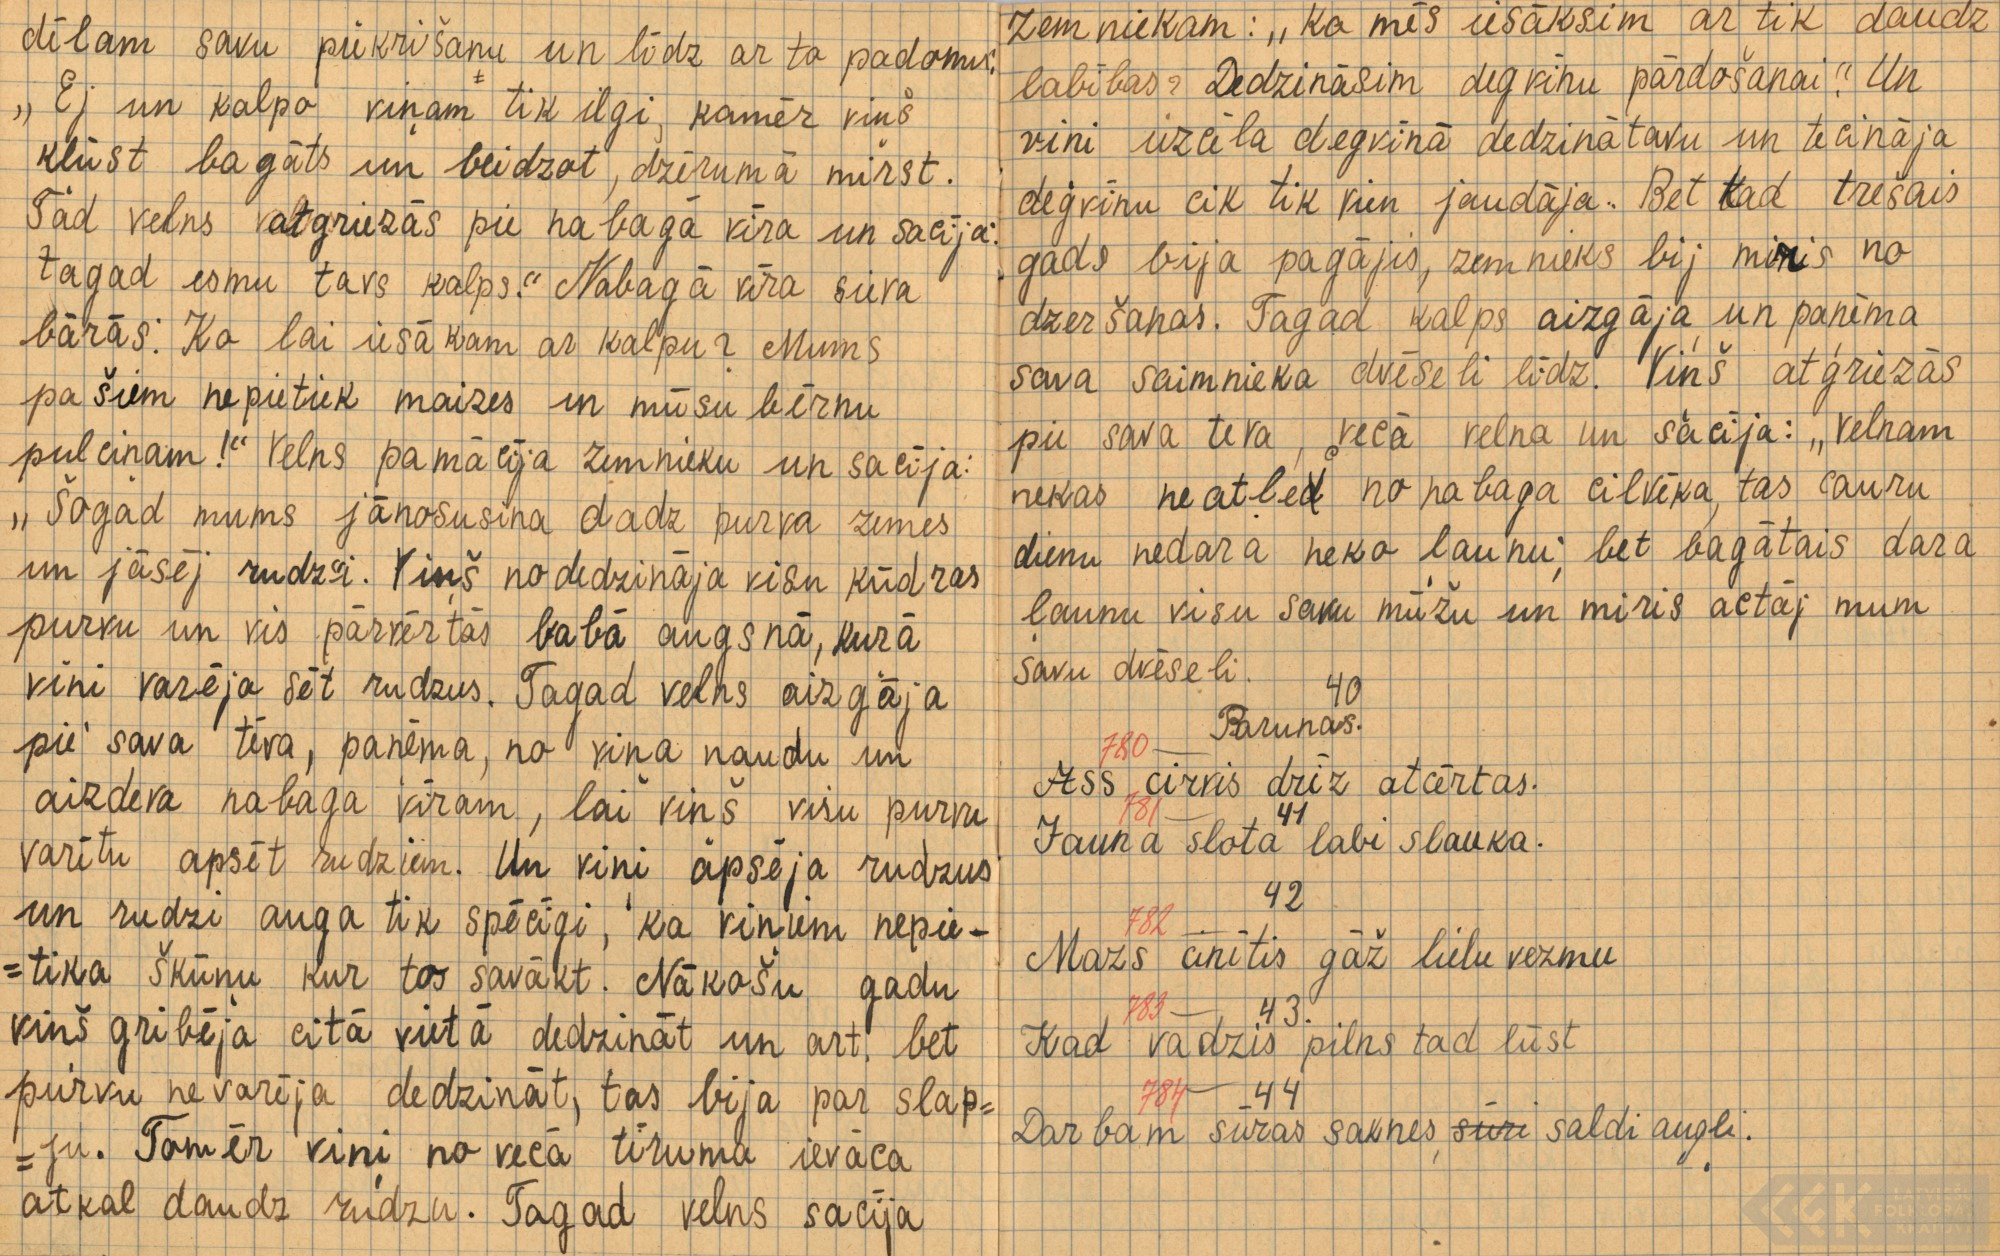 dēlam savu piekrišanu un līdz ar to padomus:
„Ej un kalpo viņam tik ilgi, kamēr viņš
kļūst bagāts un beidzot, dzērumā mirst.
Tad velns atgriezās pie nabagā vīra un sacīja:
tagad esmu tavs kalps." Nabagā vīra sieva
bārās: Ko lai iesākam ar kalpu? Mums
pašiem nepietiek maizes un mūsu bērnu
pulciņam!" Velns pamācīja zemnieku un sacīja:
„Šogad mums jānosusina dadz purva zemes
un jāsēj rudzi. Viņš nodedzināja visu kūdras
purvu un vis pārvērtās babā augsnā, kurā
viņi varēja sēt rudzus. Tagad velns aizgāja
pie sava tēva, paņēma, no viņa naudu un
aizdeva nabaga vīram, lai viņš visu purvu
varētu apsēt rudziem. Un viņi apsēja rudzus
un rudzi auga tik spēcīgi, ka viņiem nepie-
=tika šķūņu kur tos savākt. Nākošu gadu
viņš gribēja citā vietā dedzināt un art, bet
purvu nevarēja dedzināt, tas bija par slap=
=ju. Tomēr viņi no vecā tīruma ievāca
atkal daudz rudzu. Tagad velns sacīja
zemniekam: „Ko mēs iesāksim ar tik daudz
labības? Dedzināsim degvīnu pārdošanai". Un
viņi uzcēla degvīnā dedzinātavu un tecināja
degvīnu cik tik vien jaudāja. Bet kad trešais
gads bija pagājis, zemnieks bij miris no
dzeršanas. Tagad kalps aizgāja un paņēma
sava saimnieka dvēseli līdz. Viņš atgriezās
pie sava tēva, vecā velna un sacīja: „Velnam
nekas neatlec no nabaga cilvēka, tas cauru
dienu nedara neko ļaunu; bet bagātais dara
ļaunu visu savu mūžu un miris actāj mum
savu dvēseli.
40
Parunas.
780
Ass cirvis drīz atcērtas.
781 41
Jauna slota labi slauka.
42
782
Mazs cinītis gāž lielu vezmu
783 43.
Kad vadzis pilns tad lūst
784 44
Darbam sūras saknes, sūri saldi augļi.
LATVIEŠU FOLKLORAS KRĀTUVE